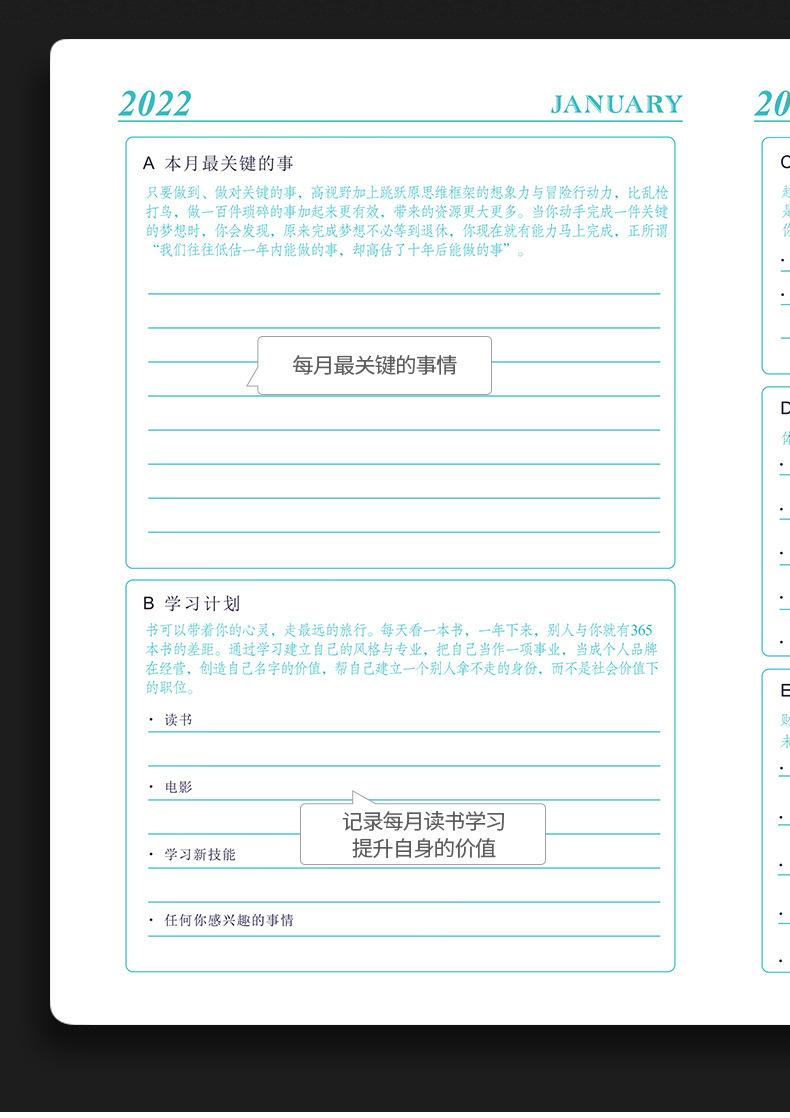 2022
JANUARY
A 本月最关键的事
只要做到、做对关键的事，高视野加上跳跃原思维框架的想象力与冒险行动力，比乱枪
打鸟，做一百件琐碎的事加起来更有效，带来的资源更大更多。当你动手完成一件关键
的梦想时，你会发现，原来完成梦想不必等到退休，你现在就有能力马上完成，正所谓
“我们往往低估一年内能做的事，却高估了十年后能做的事”。
每月最关键的事情
B 学习计划
书可以带着你的心灵，走最远的旅行。每天看一本书，一年下来，别人与你就有365
本书的差距。通过学习建立自己的风格与专业，把自己当作一项事业，当成个人品牌
在经营，创造自己名字的价值，帮自己建立一个别人拿不走的身份，而不是社会价值下
的职位。
· 读书
· 电影
记录每月读书学习
提升自身的价值
· 学习新技能
· 任何你感兴趣的事情
20
D
E
未